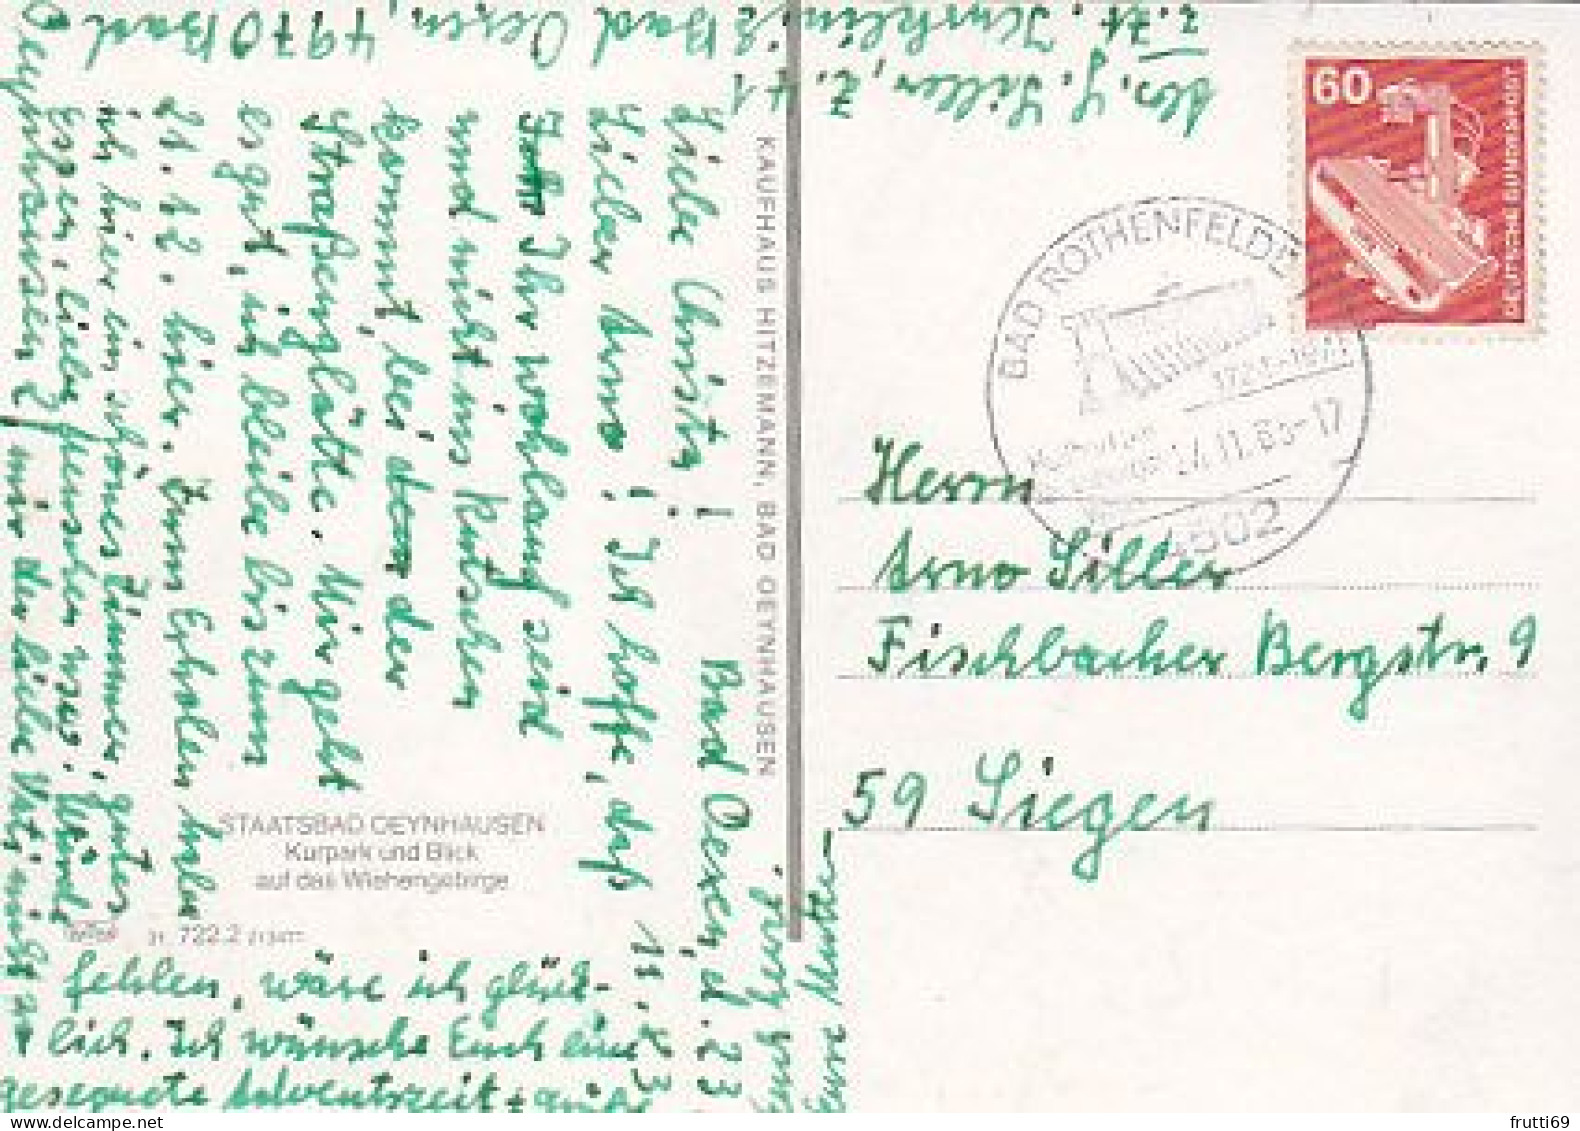 Abs. G. Siller, Z. 41
z. Zt. Kurklinik Bad Oexen, 4970 Bad
Oeynhausen 2
Bad Oexen, d. 23.
11. 83
Liebe Christa!
Lieber Arno! Ich hoffe, daß
Ihr wohlauf seid
und nicht ins Rutschen
kommt, bei der
Straßenglätte. Mir geht
es gut, ich bleibe bis zum
21. 12. hier. Zum Erholen habe
ich hier ein schönes Zimmer, gutes
Essen, liebe Menschen usw. Würde
mir der liebe Vati nicht
fehlen, wäre ich glück-
lich. Ich wünsche Euch eine
gesegnete Adventszeit +
Eure Mutter
KAUFHAUS HITZEMANN, BAD OEYNHAUSEN
STAATSBAD OEYNHAUSEN
Kurpark und Blick
auf das Wiehengebirge
722.2
60
DEUTSCHE BUNDESPOST
BAD ROTHENFELDE
4502
Herrn
Arno Siller
Fischbacher Bergstr. 9
59 Siegen
frutti69